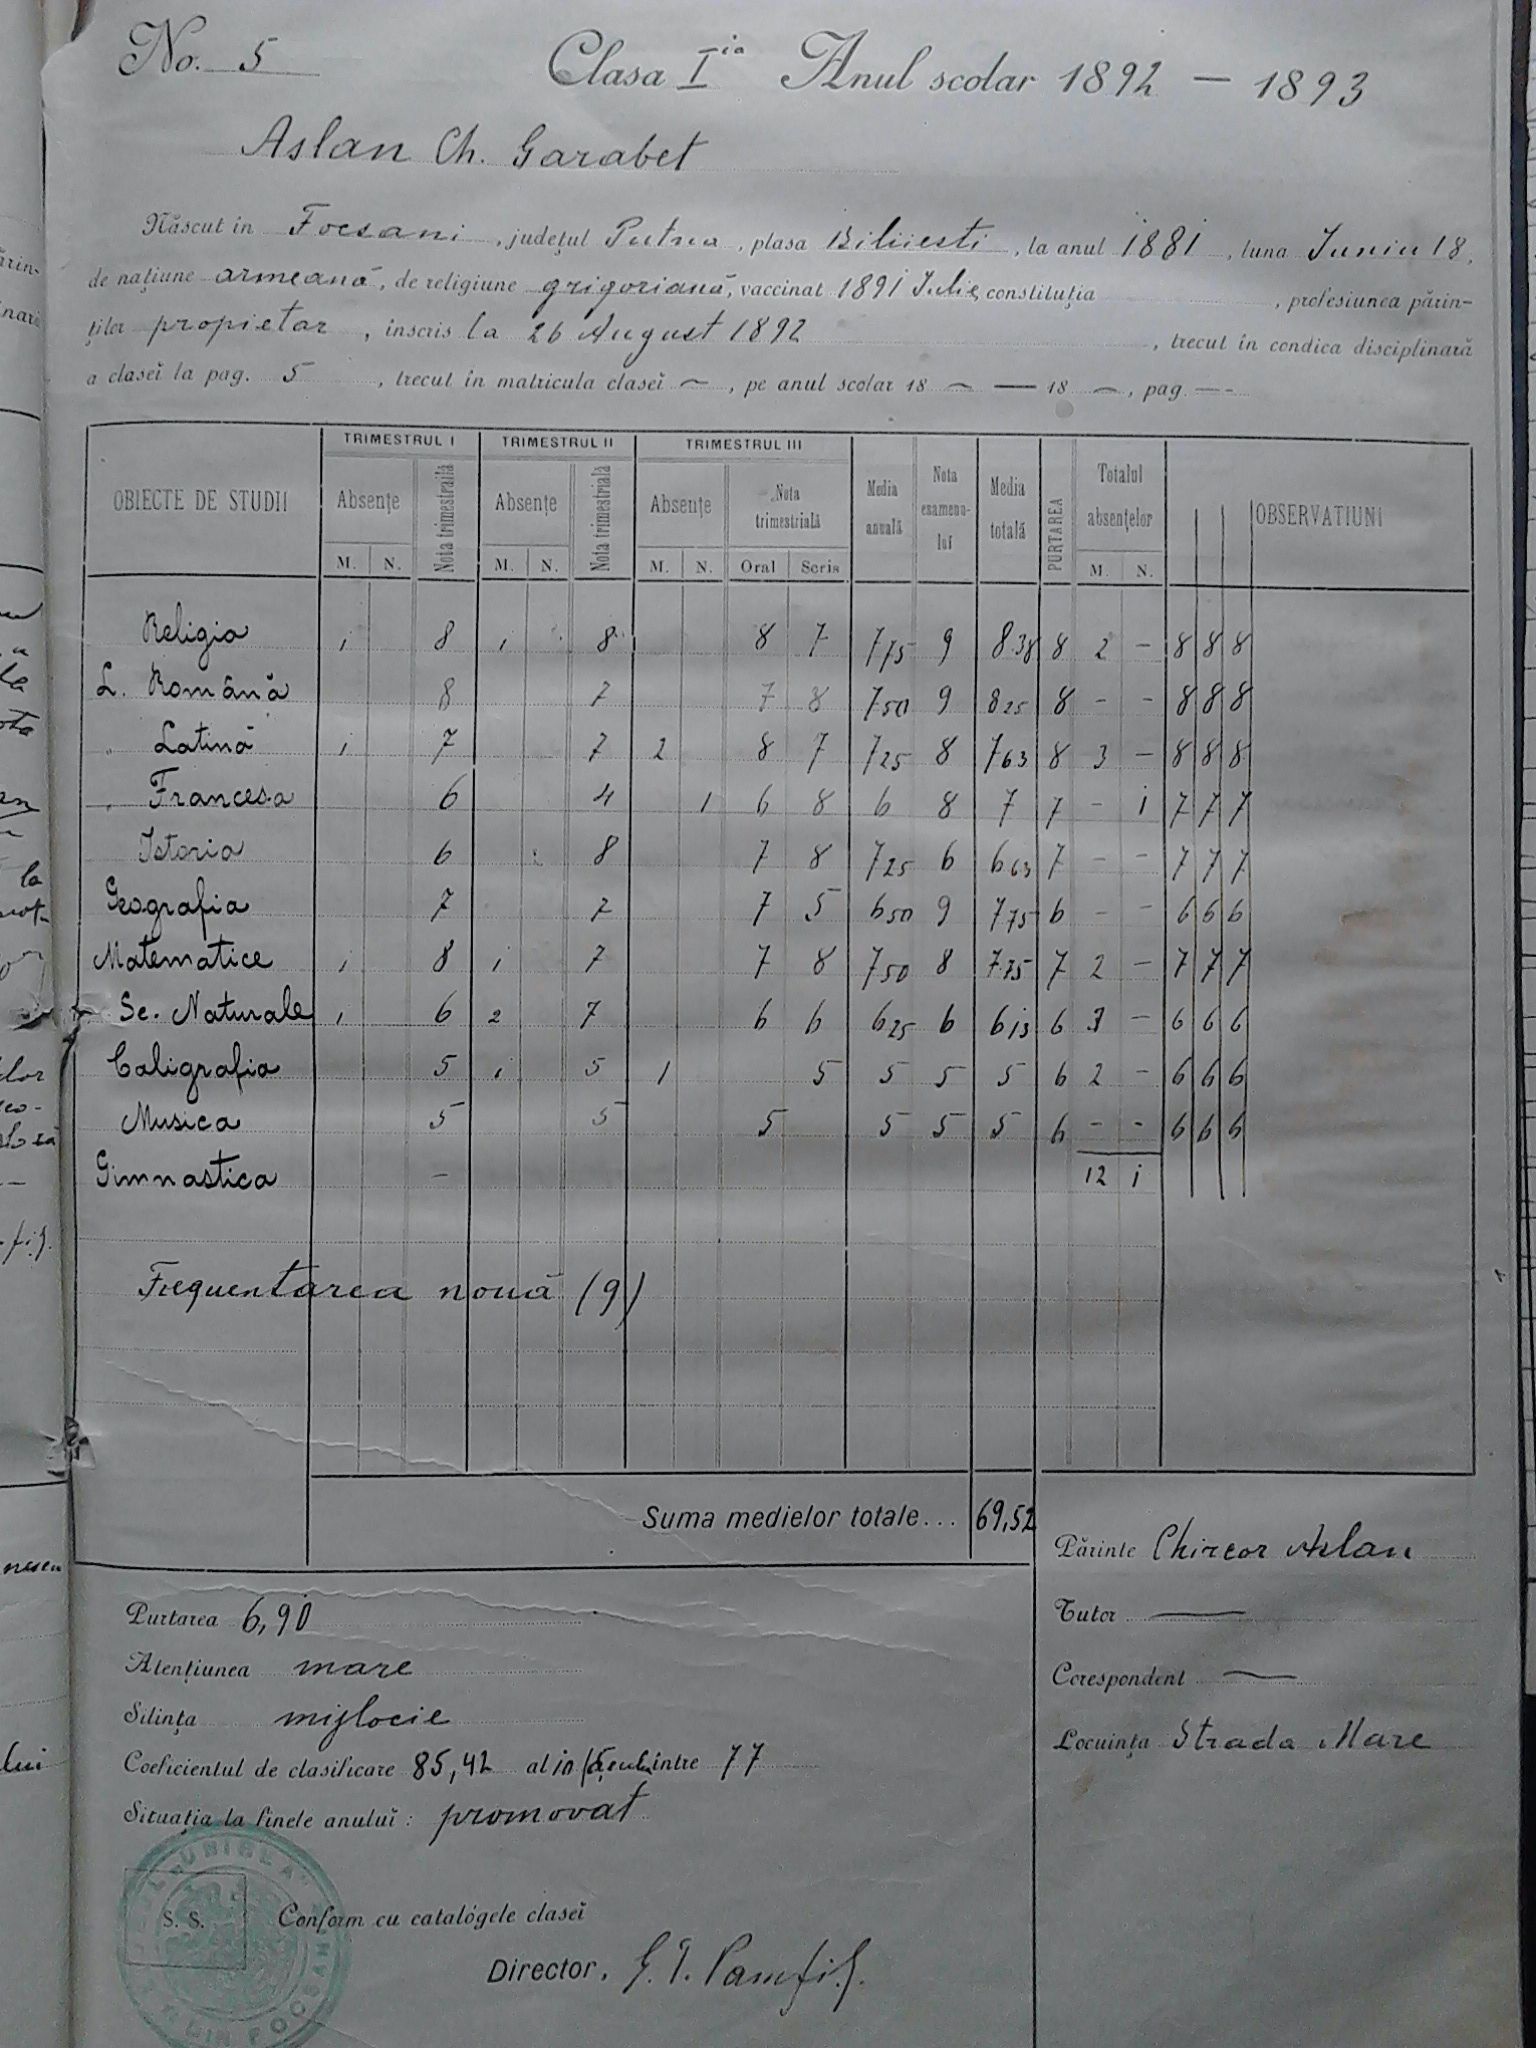 No. 5 Clasa I ia Anul scolar 1892 — 1893
Aslan Ch. Garabet
Născut în Focsani, județul Putna, plasa Biliesti, la anul 1881, luna Iuniu 18,
de națiune armeană, de religiune grigoriană, vaccinat 1891 Iulie, constituția , profesiunea părin-
ților propietar, înscris la 26 August 1892 , trecut în condica disciplinară
a claseĭ la pag. 5 , trecut în matricula claseĭ — , pe anul scolar 18 — — 18 — , pag. — -
OBIECTE DE STUDII TRIMESTRUL I TRIMESTRUL II TRIMESTRUL III Media anuală Nota examenu-luĭ Media totală PURTAREA Totalul absențelor OBSERVATIUNI
Absențe Nota trimestrială Absențe Nota trimestrială Absențe Nota trimestrială
M. N. M. N. M. N. Oral Scris M. N.
Religia 1 8 1 8 8 7 7 75 9 8 38 8 2 - 8 8 8
L. Română 8 7 7 8 7 50 9 8 25 8 - - 8 8 8
" Latină 1 7 7 2 8 7 7 25 8 7 63 8 3 - 8 8 8
" Francesa 6 4 1 6 8 6 8 7 7 - 1 7 7 7
Istoria 6 8 7 8 7 25 6 6 63 7 - - 7 7 7
Geografia 7 7 7 5 6 50 9 7 75 6 - - 6 6 6
Matematice 1 8 1 7 7 8 7 50 8 7 75 7 2 - 7 7 7
Sc. Naturale 1 6 2 7 6 6 6 25 6 6 13 6 3 - 6 6 6
Caligrafia 5 1 5 1 5 5 5 5 6 2 - 6 6 6
Musica 5 5 5 5 5 5 6 - - 6 6 6
Gimnastica - 12 1
Frequentarea nouă (9)
Suma medielor totale... 69,52
Părinte Chircor Aslan
Tutor —
Corespondent —
Locuința Strada Mare
Purtarea 6,90
Atențiunea mare
Silința mijlocie
Coeficientul de clasificare 85,42 al între 77
Situația la finele anuluĭ: promovat
S. S. Conform cu catalógele claseĭ
Director, G. I. Pamfil.
DIN FOCSANI